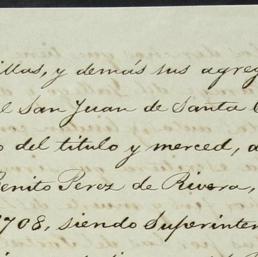 illas, y demás sus agreg
el San Juan de Santa
o del titulo y merced, a
Benito Perez de Rivera,
1708, siendo Superinten